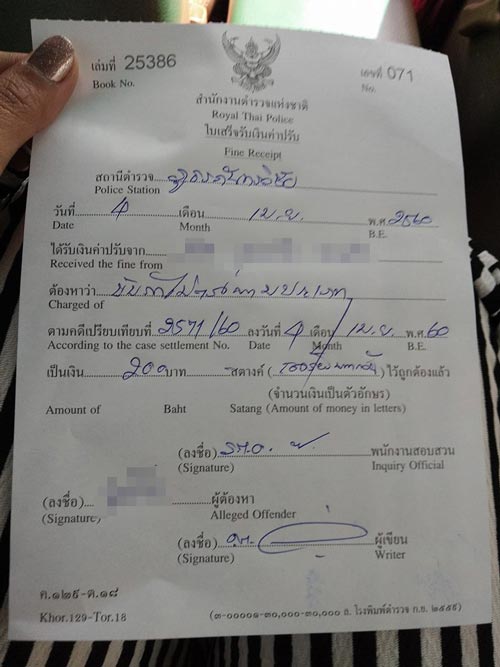 เล่มที่ 25386 เลขที่ 071
Book No. No.
สำนักงานตำรวจแห่งชาติ
Royal Thai Police
ใบเสร็จรับเงินค่าปรับ
Fine Receipt
สถานีตำรวจ
Police Station
วันที่ 4 เดือน เม.ย. พ.ศ. 2560
Date Month B.E.
ได้รับเงินค่าปรับจาก
Received the fine from
ต้องหาว่า
Charged of
ตามคดีเปรียบเทียบที่ 2571/60 ลงวันที่ 4 เดือน เม.ย. พ.ศ. 60
According to the case settlement No. Date Month B.E.
เป็นเงิน 200 บาท - สตางค์ (สองร้อยบาทถ้วน) ไว้ถูกต้องแล้ว
(จำนวนเงินเป็นตัวอักษร)
Amount of Baht Satang (Amount of money in letters)
(ลงชื่อ) พนักงานสอบสวน
(Signature) Inquiry Official
(ลงชื่อ) ผู้ต้องหา
(Signature) Alleged Offender
(ลงชื่อ) ผู้เขียน
(Signature) Writer
ค.๑๒๙-ต.๑๘
Khor.129-Tor.18 (๓-๐๐๐๐๑-๓๐,๐๐๐-๓๐,๐๐๐ ล. โรงพิมพ์ตำรวจ ก.ย. ๒๕๕๙)